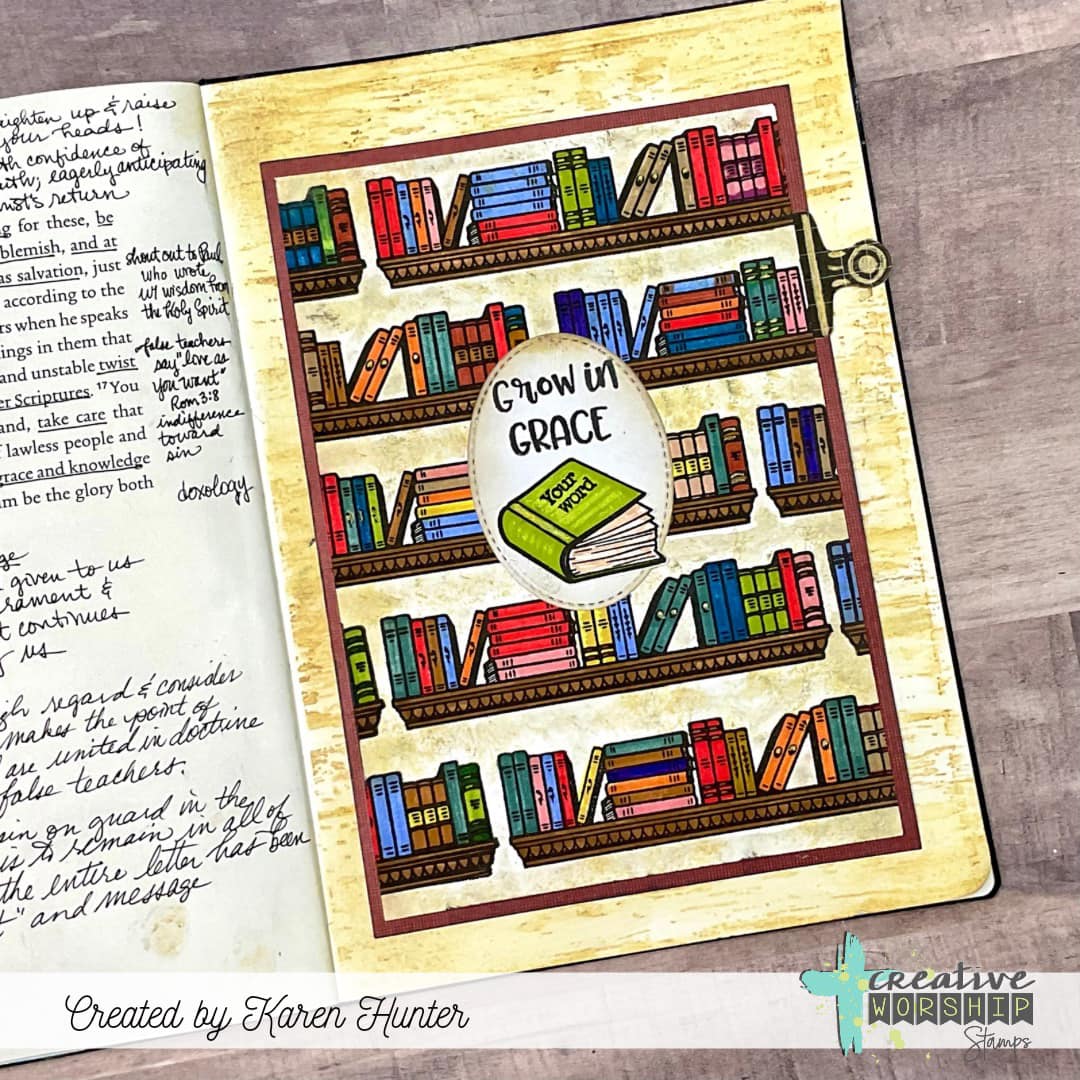 ighten up & raise
your heads!
th confidence of
ith; eagerly anticipating
rist's return
g for these, be
blemish, and at
as salvation, just
according to the
rs when he speaks
ings in them that
and unstable twist
er Scriptures. ¹⁷You
and, take care that
f lawless people and
grace and knowledge
m be the glory both
shout out to Paul
who wrote
w/ wisdom from
the Holy Spirit
false teachers
say "love as
you want"
Rom 3:8
indifference
toward
sin
doxology
ge
given to us
rament &
t continues
y us
gh regard & consider
makes the point of
are united in doctrine
false teachers.
ain on guard in the
is to remain in all of
the entire letter has been
t" and message
Grow in
GRACE
Your
word
Created by Karen Hunter
creative
WORSHIP
Stamps